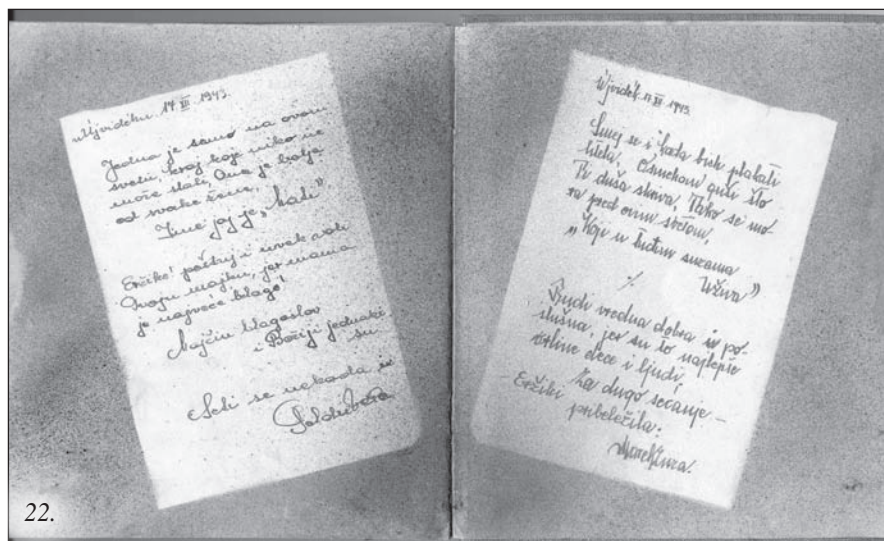 Ujvideku 14 III 1943.
Jedna je samo na ovom
svetu, kraj koje niko ne
može stati, Ona je bolja
od svake žene,
Ime joj je „Mati”.
Erčike! poštuj i uvek voli
Svoju majku, jer mama
je najveće blago!
Majčin blagoslov
i Božiji jednaki
su.
Seti se nekada i
Ujvidék 1943.
Smej se i kada bish plakati
htela, Osmehom guši što
Ti duša skriva, Tako se mo-
ra pred onim svetom,
„Koji u tuđim suzama
Uživa”
·/.
Budi vredna dobra i po-
slušna, jer su to najlepše
vrline dece i ljudi,
Za dugo sećanje –
Eržiki pribeležila:
22.